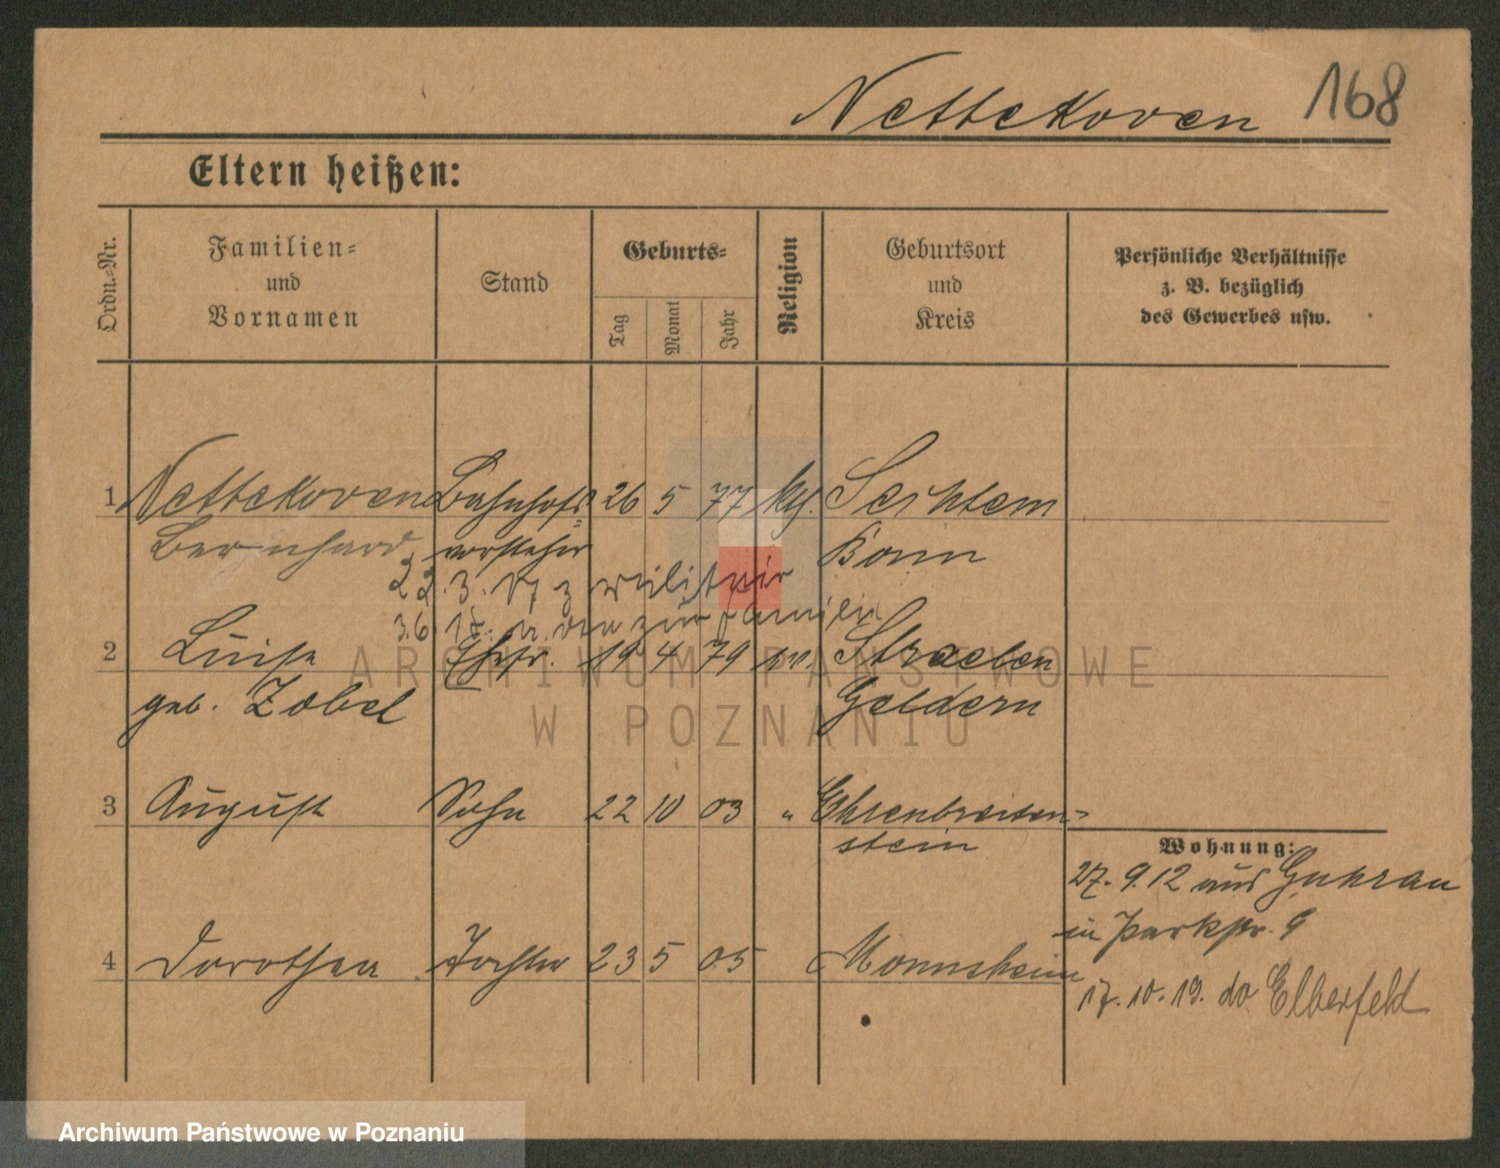 Nettekoven 168
Eltern heißen:
Ordn.-Nr.
Familien-
und
Vornamen
Stand
Geburts-
Tag
Monat
Jahr
Religion
Geburtsort
und
Kreis
Persönliche Verhältnisse
z. B. bezüglich
des Gewerbes usw.
1 Nettekoven Bahnhofs- 26 5 77 kth. Sechtem
Bernhard vorsteher Bonn
22.3.17 z Militär
3.6.18. zur Familie
2 Luise Ehefr. 19 4 79 ev. Straelen
geb. Zobel Geldern
3 August Sohn 22 10 03 " Ehrenbreiten-
stein
Wohnung:
27.9.12 aus Guhrau
in Parkstr. 9
4 Dorothea Tochter 23 5 05 Monnsheim
17.10.19. do Elberfeld
ARCHIWUM PAŃSTWOWE
W POZNANIU
Archiwum Państwowe w Poznaniu